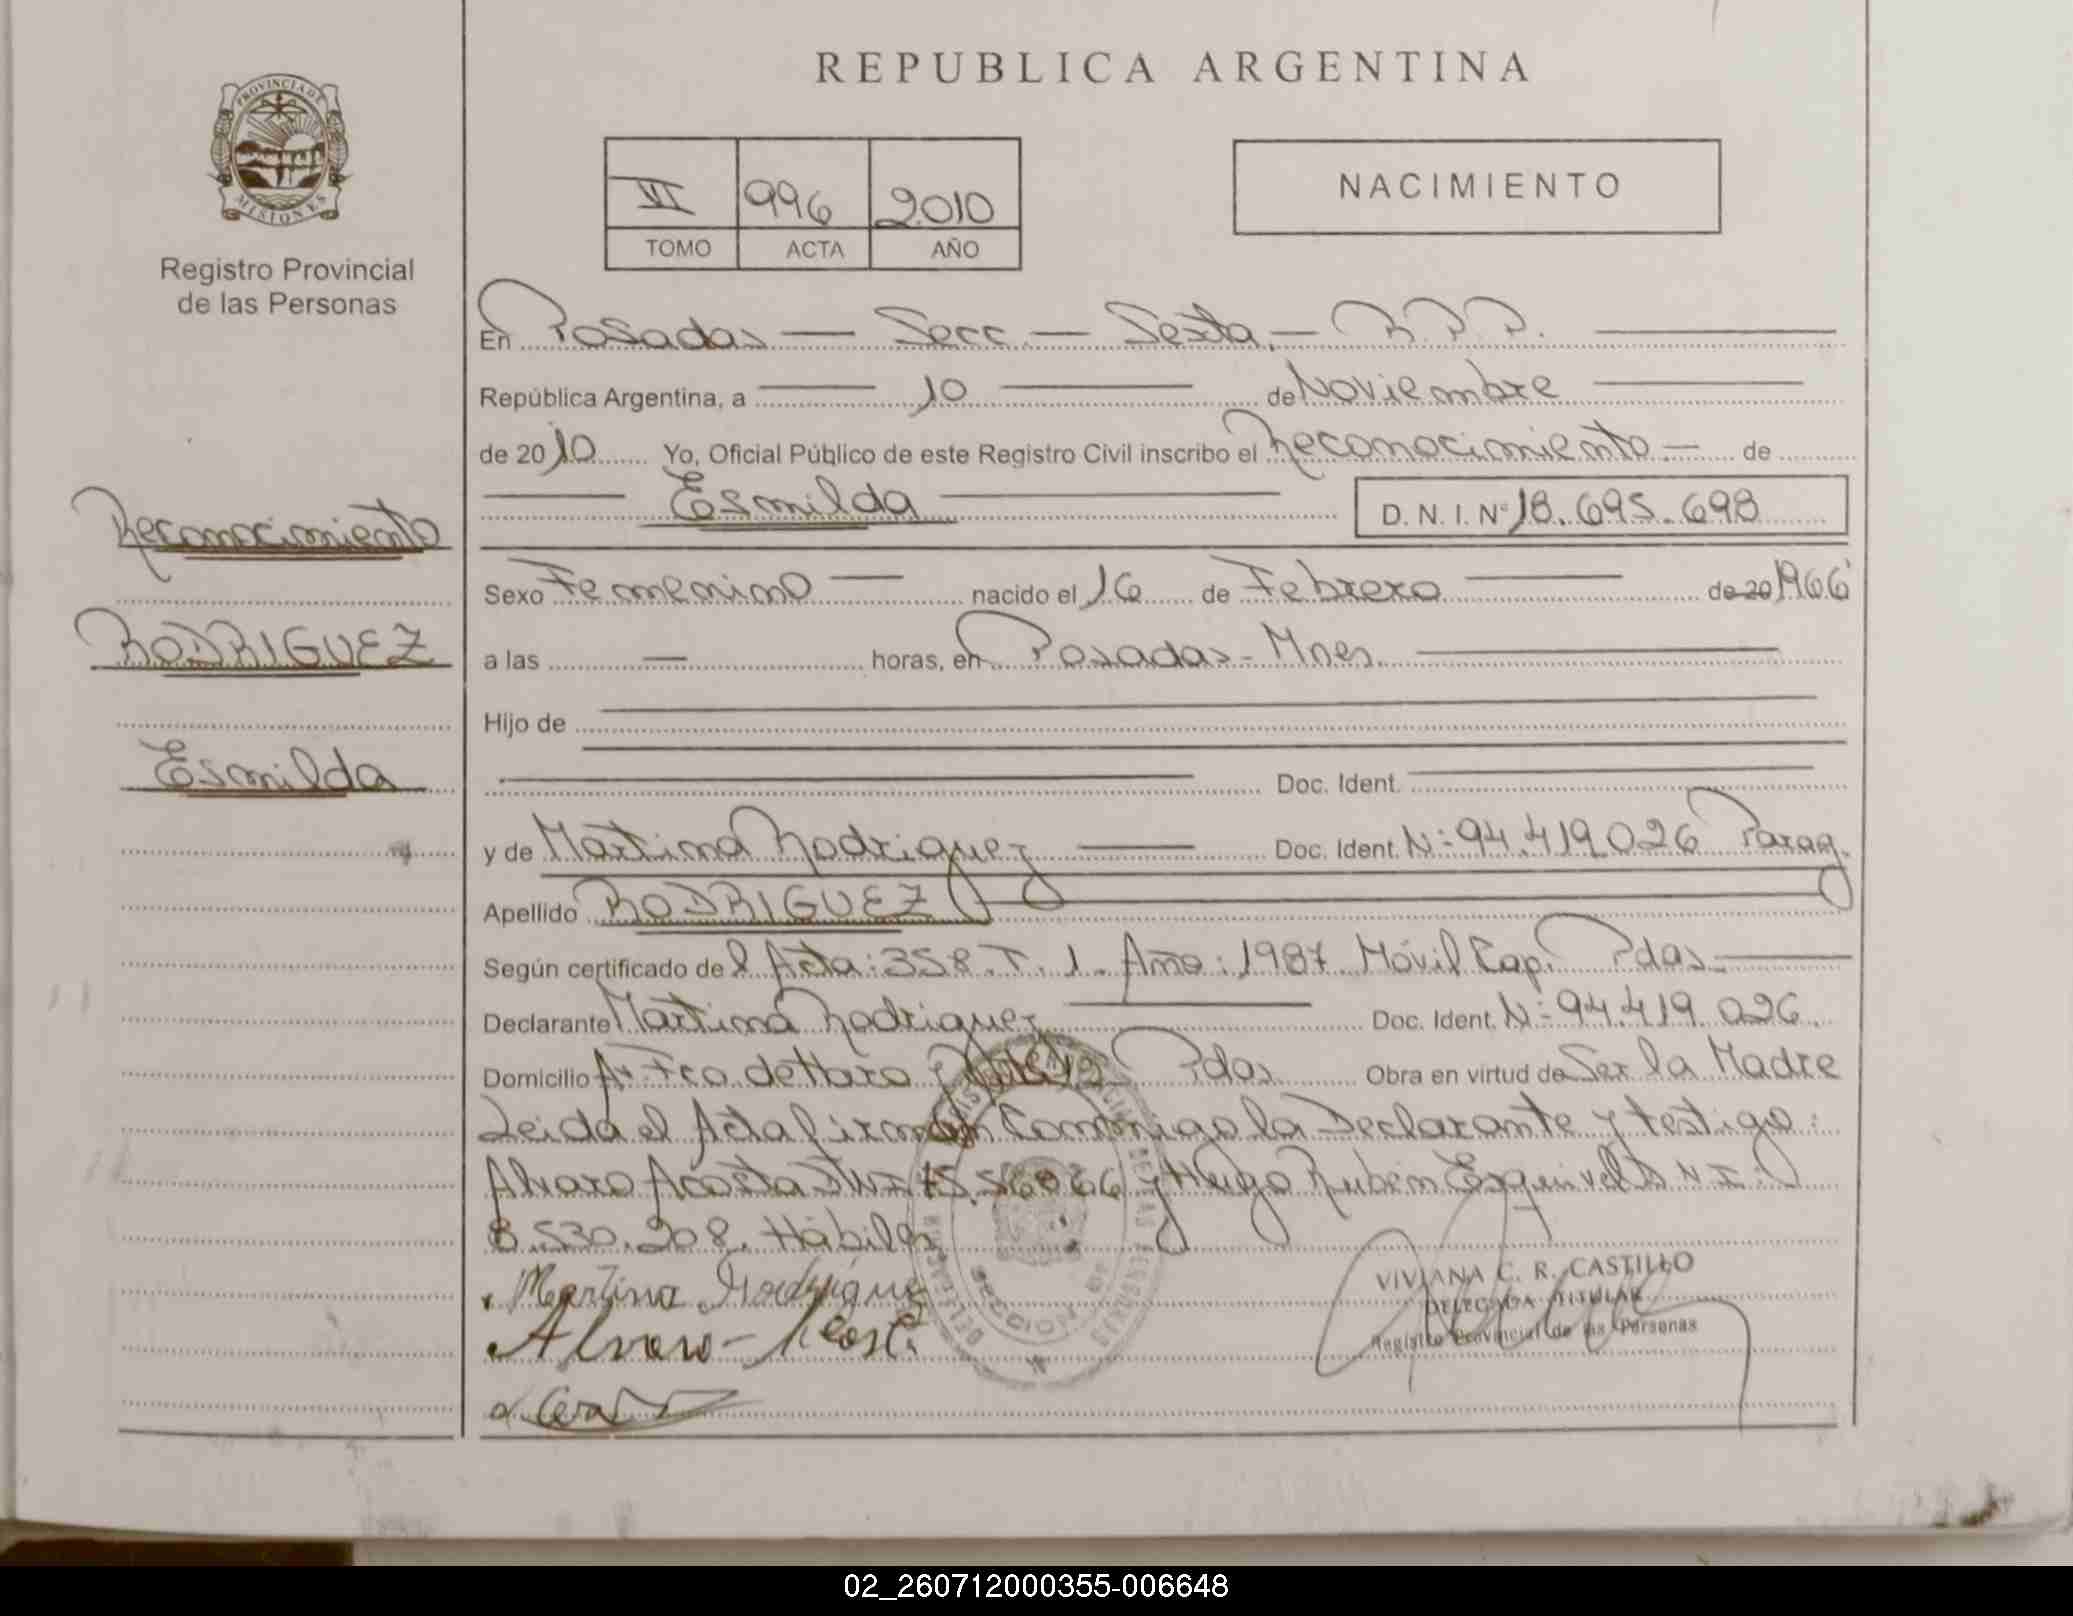 REPUBLICA ARGENTINA
PROVINCIA DE
MISIONES
Registro Provincial
de las Personas
VI 996 2010
TOMO ACTA AÑO
NACIMIENTO
En Posadas — Secc. — Sexta. — R.P.P. —
República Argentina, a — 10 — de Noviembre —
de 2010 Yo, Oficial Público de este Registro Civil inscribo el Reconocimiento — de
— Esmilda — D. N. I. Nº 18.695.698
Reconocimiento
Sexo Femenino — nacido el 16 de Febrero — de 20 1966
RODRIGUEZ
a las — horas, en Posadas - Mnes —
Hijo de
Esmilda
Doc. Ident.
y de Martina Rodriguez — Doc. Ident. Nº 94.419.026 Parag.
Apellido RODRIGUEZ
Según certificado del Acta: 358. T. 1. Año: 1987 Móvil Cap. Pdas. —
Declarante Martina Rodriguez — Doc. Ident. Nº 94.419.026.
Domicilio Av. Fco. de Haro Pdas. Obra en virtud de Ser la Madre
Leida el Acta firman Conmigo la Declarante y testigo:
Alvaro Acosta DNI y Hugo Ruben Esquivel D.N.I:
8.530.208. Hábiles
Martina Rodrigue
VIVIANA C. R. CASTILLO
DELEGADA TITULAR
Registro Provincial de las Personas
Alvaro - Acost.
SECCION
02_260712000355-006648